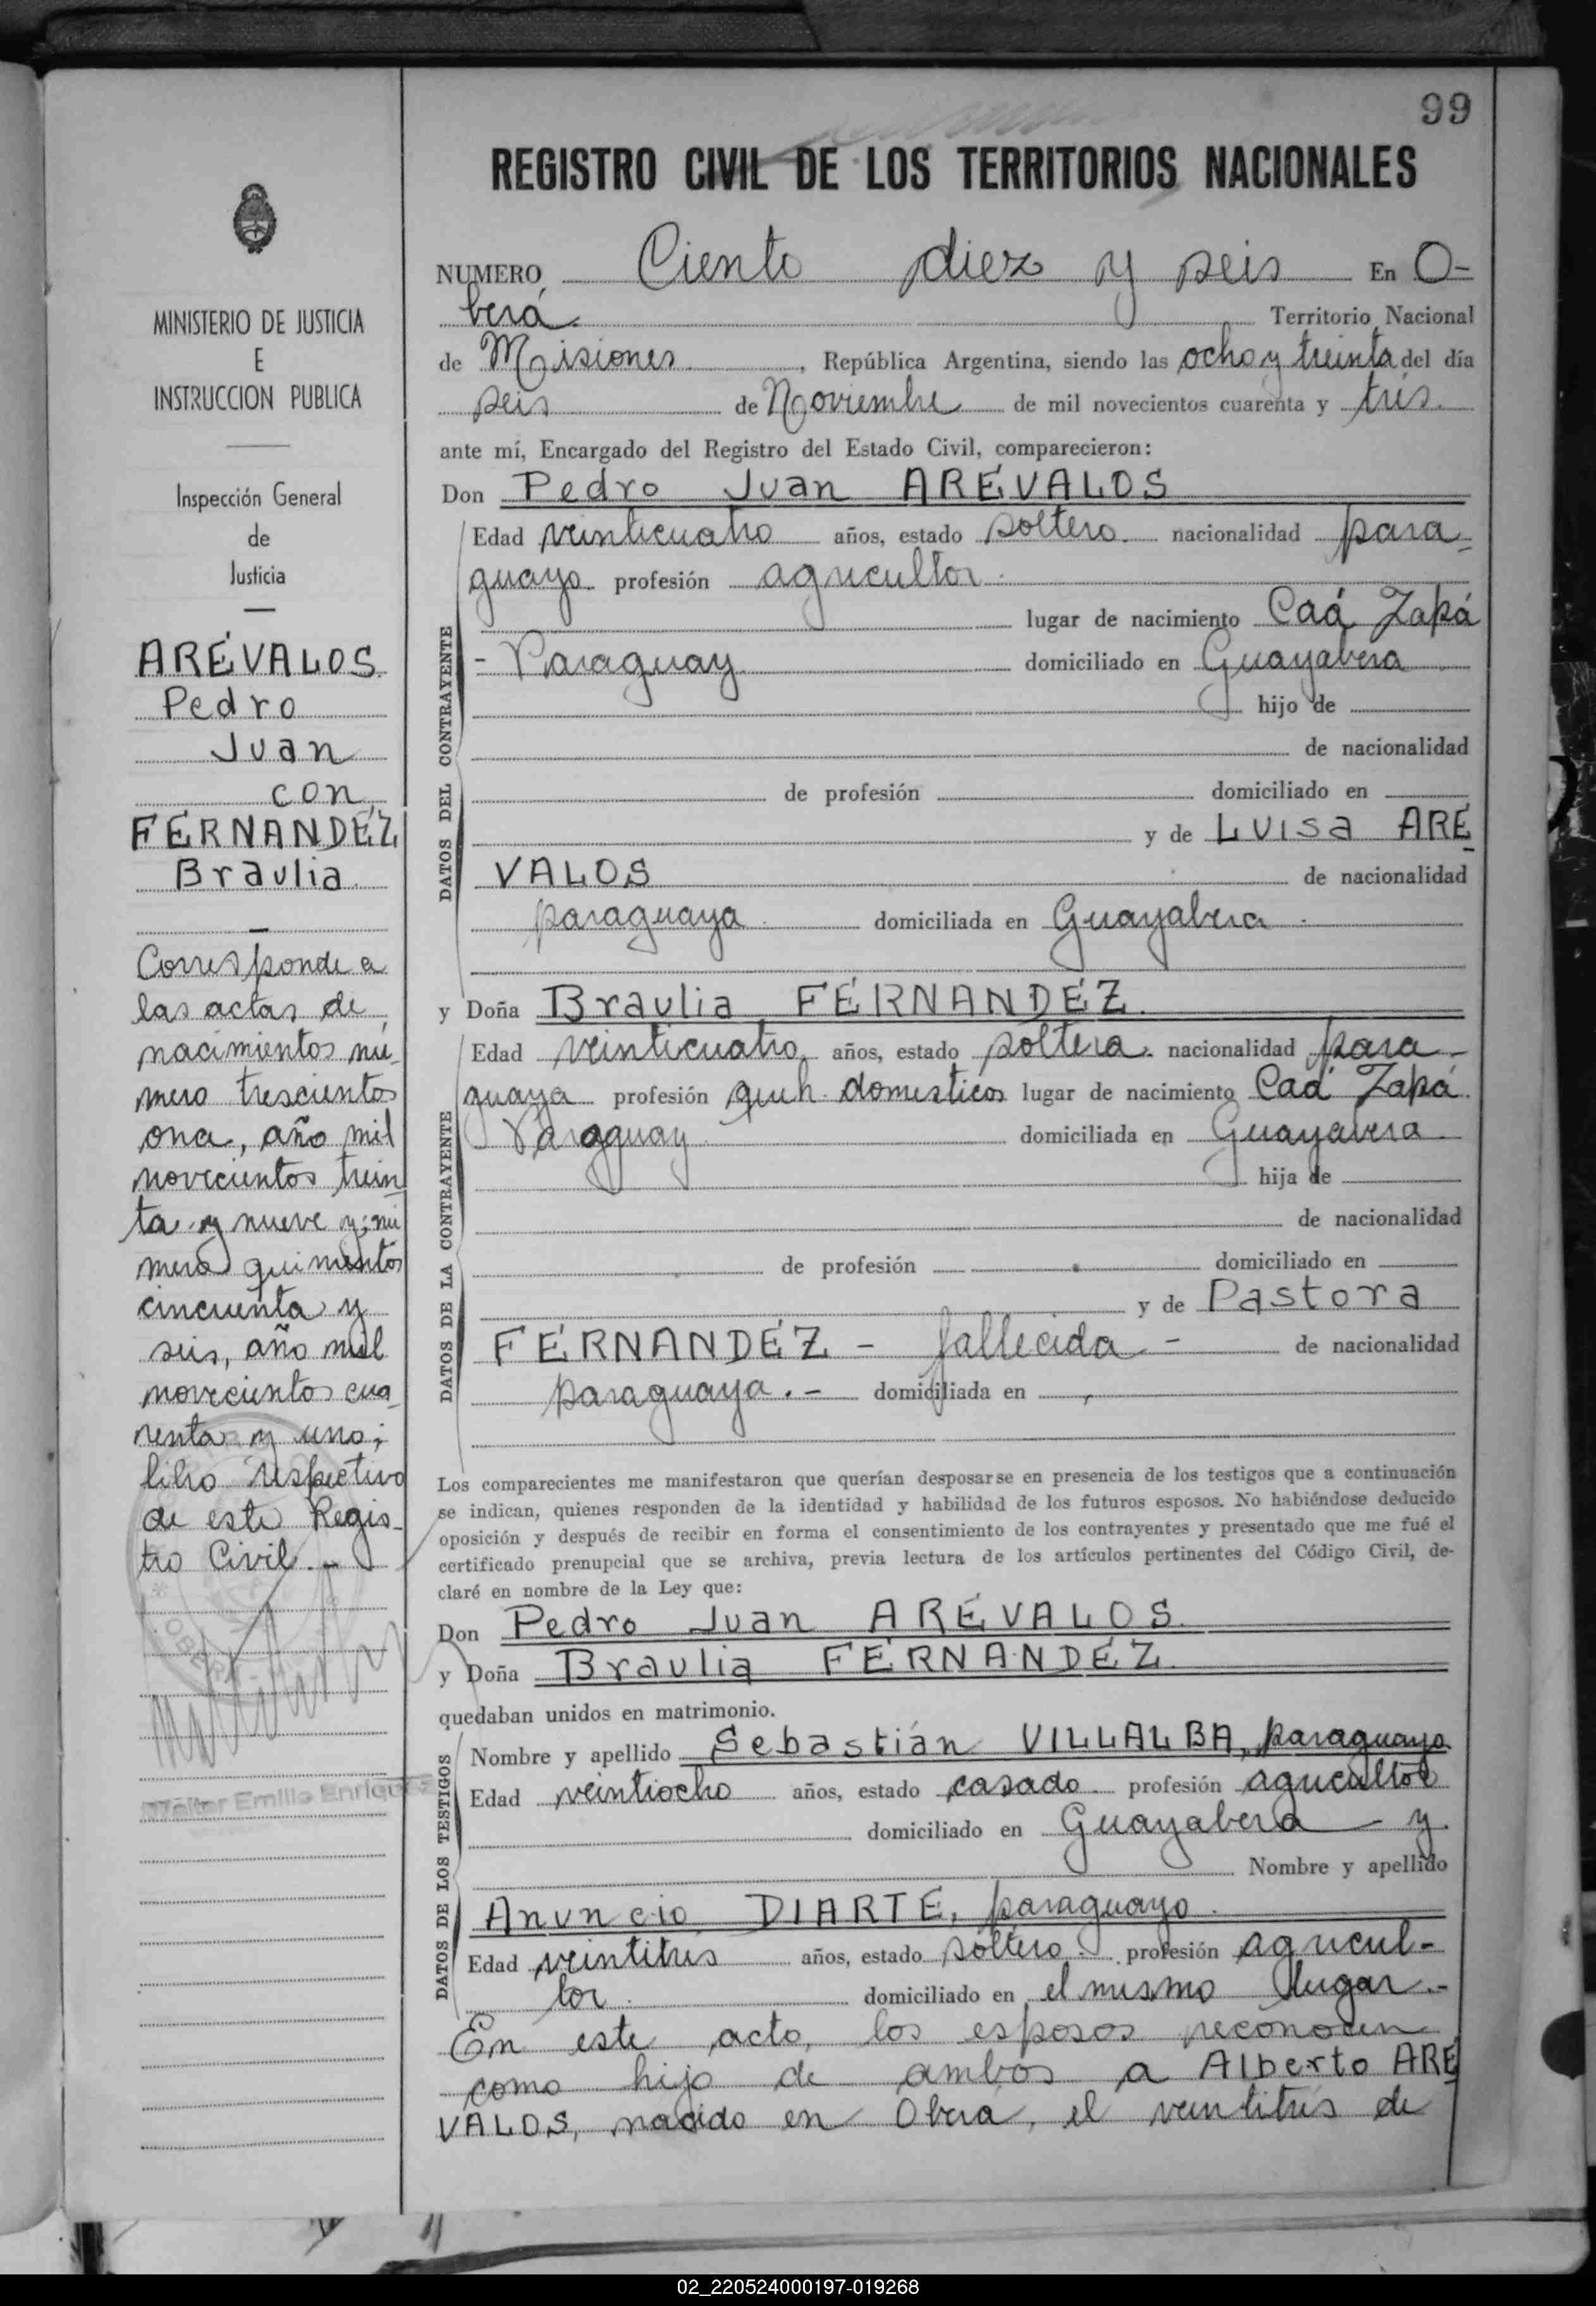 99
REGISTRO CIVIL DE LOS TERRITORIOS NACIONALES
NUMERO Ciento diez y seis En O-
berá. Territorio Nacional
de Misiones, República Argentina, siendo las ocho y treinta del día
seis de Noviembre de mil novecientos cuarenta y tres.
ante mí, Encargado del Registro del Estado Civil, comparecieron:
Don Pedro Juan ARÉVALOS
DATOS DEL CONTRAYENTE
Edad veinticuatro años, estado soltero. nacionalidad para-
guayo profesión agricultor.
lugar de nacimiento Caá Zapá
- Paraguay domiciliado en Guayabera
hijo de
de nacionalidad
de profesión domiciliado en
y de Luisa ARE
VALOS de nacionalidad
paraguaya domiciliada en Guayabera.
y Doña Braulia FERNANDEZ.
DATOS DE LA CONTRAYENTE
Edad veinticuatro, años, estado soltera. nacionalidad para-
guaya profesión queh. domesticos lugar de nacimiento Caá Zapá.
Paraguay domiciliada en Guayavera
hija de
de nacionalidad
de profesión domiciliado en
y de Pastora
FERNANDEZ - fallecida - de nacionalidad
paraguaya.- domiciliada en
Los comparecientes me manifestaron que querían desposarse en presencia de los testigos que a continuación
se indican, quienes responden de la identidad y habilidad de los futuros esposos. No habiéndose deducido
oposición y después de recibir en forma el consentimiento de los contrayentes y presentado que me fué el
certificado prenupcial que se archiva, previa lectura de los artículos pertinentes del Código Civil, de-
claré en nombre de la Ley que:
Don Pedro Juan ARÉVALOS.
y Doña Braulia FERNANDEZ.
quedaban unidos en matrimonio.
DATOS DE LOS TESTIGOS
Nombre y apellido Sebastián VILLALBA, paraguayo
Edad veintiocho años, estado casado profesión agricultor
domiciliado en Guayabera - y
Nombre y apellido
Anuncio DIARTE, paraguayo.
Edad veintitres años, estado soltero. profesión agricul-
tor domiciliado en el mismo lugar.-
En este acto, los esposos reconocen
como hijo de ambos a Alberto ARE
VALOS, nacido en Oberá, el veintitrés de
MINISTERIO DE JUSTICIA
E
INSTRUCCION PUBLICA
Inspección General
de
Justicia
ARÉVALOS
Pedro
Juan
con
FERNANDEZ
Braulia
Corresponde a
las actas de
nacimientos nú-
mero trescientos
ona, año mil
novecientos trein
ta y nueve y nú
mero quinientos
cincuenta y
seis, año mil
novecientos cua-
renta y uno;
libro respectivo
de este Regis-
tro Civil.-
OBERA
Walter Emilio Enriquez
02_220524000197-019268